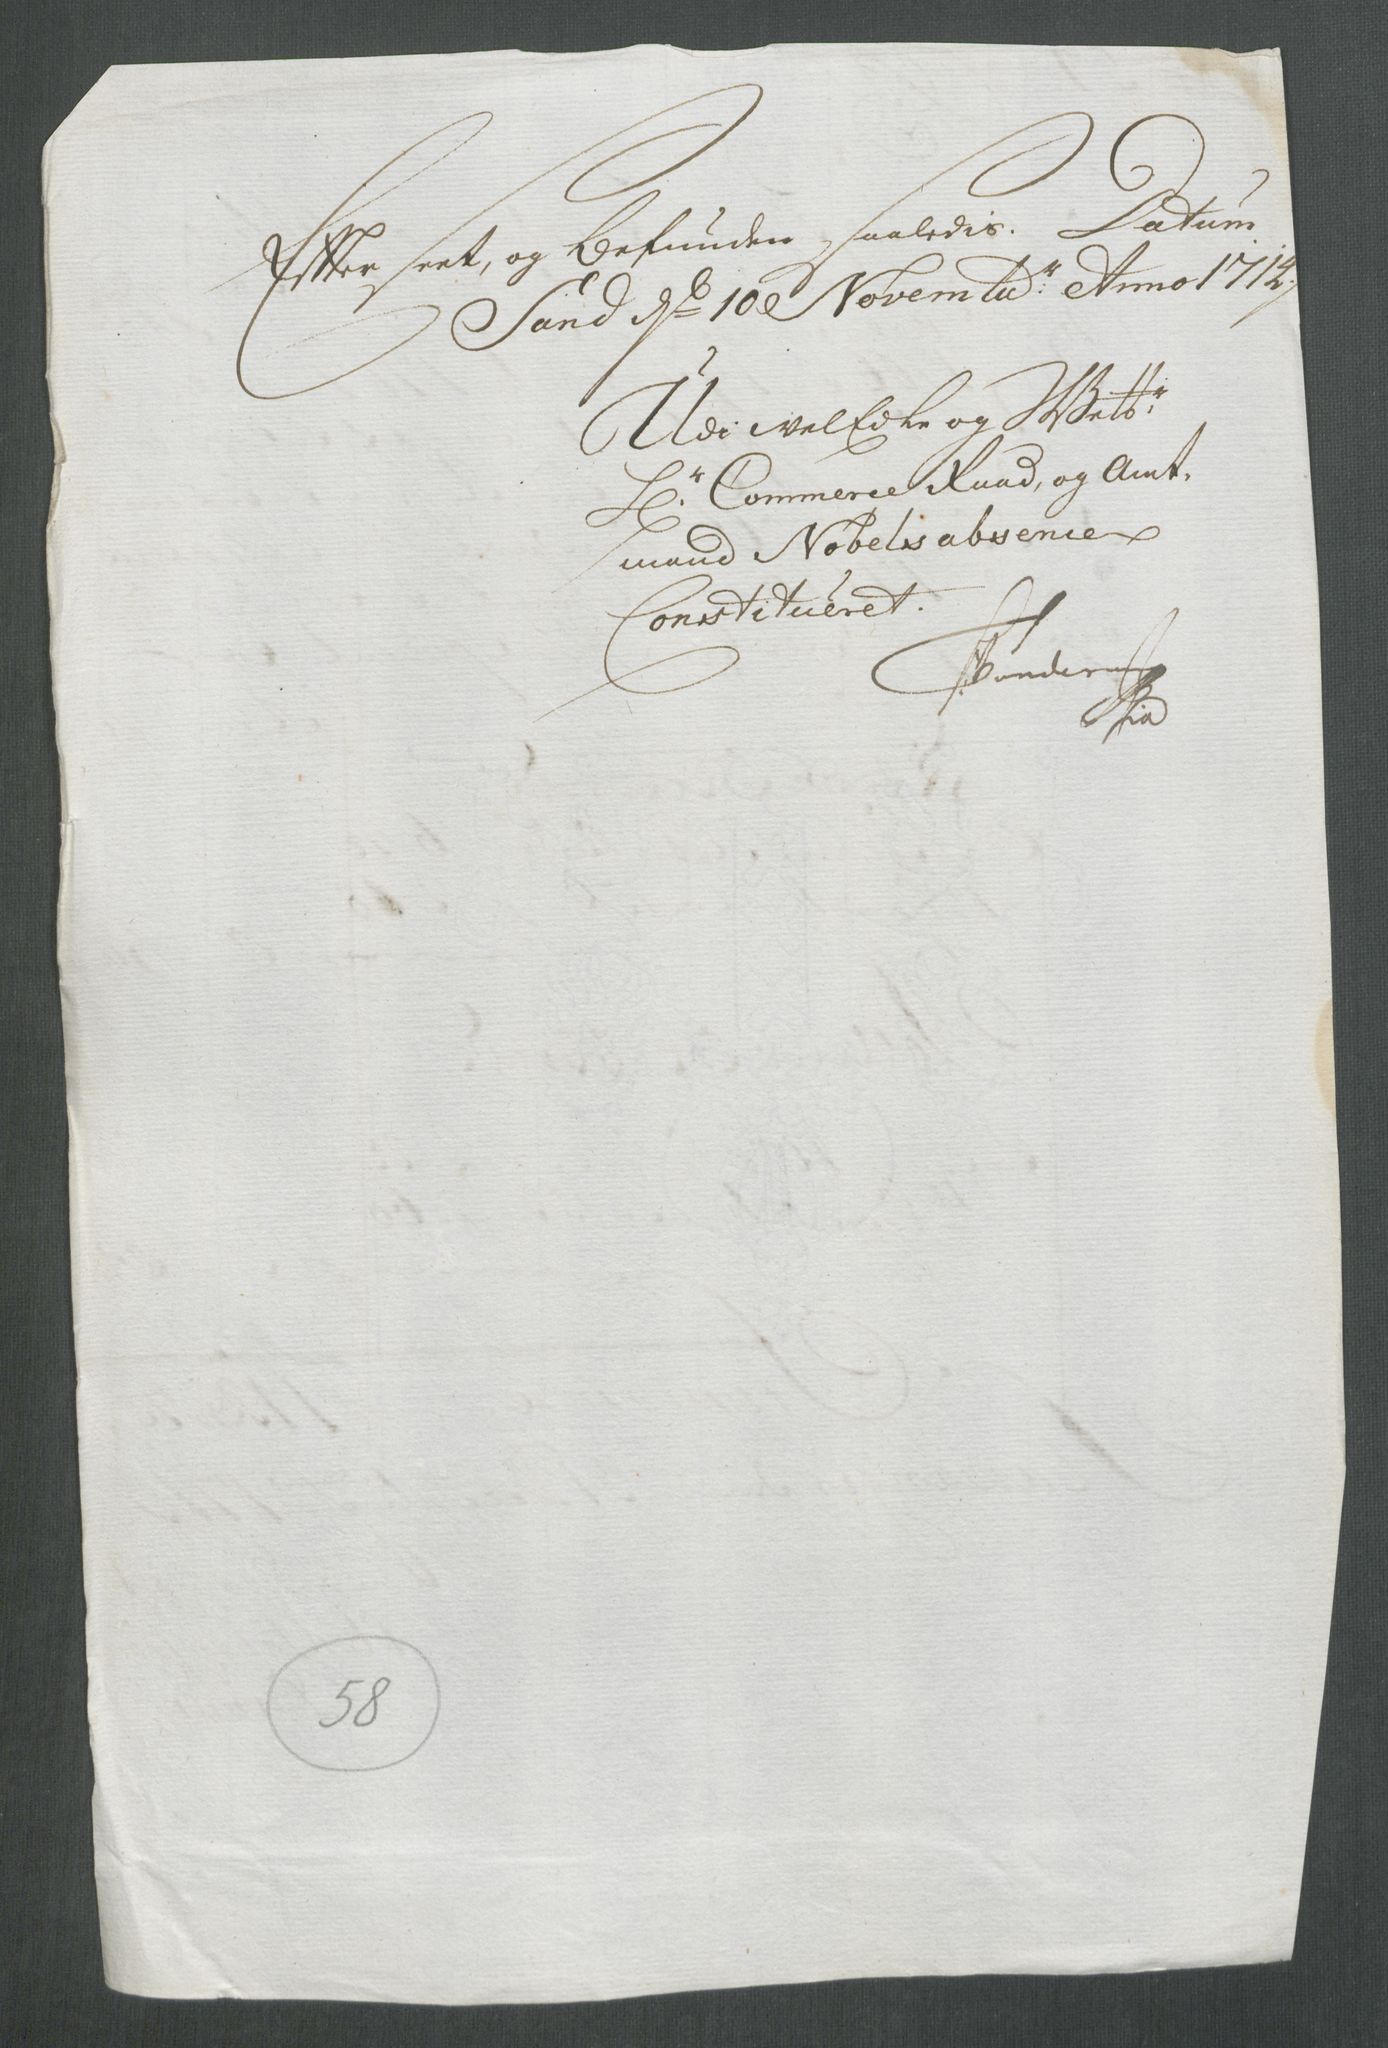 Efterseet, og befunden saaledis. Datum
Sand d. 10e Novembr: Anno 1714,
Udi vel Edle og Welbr:
Hr: Commerce Raad, og Amt,
mand Nobels absence
Constitueret.
58